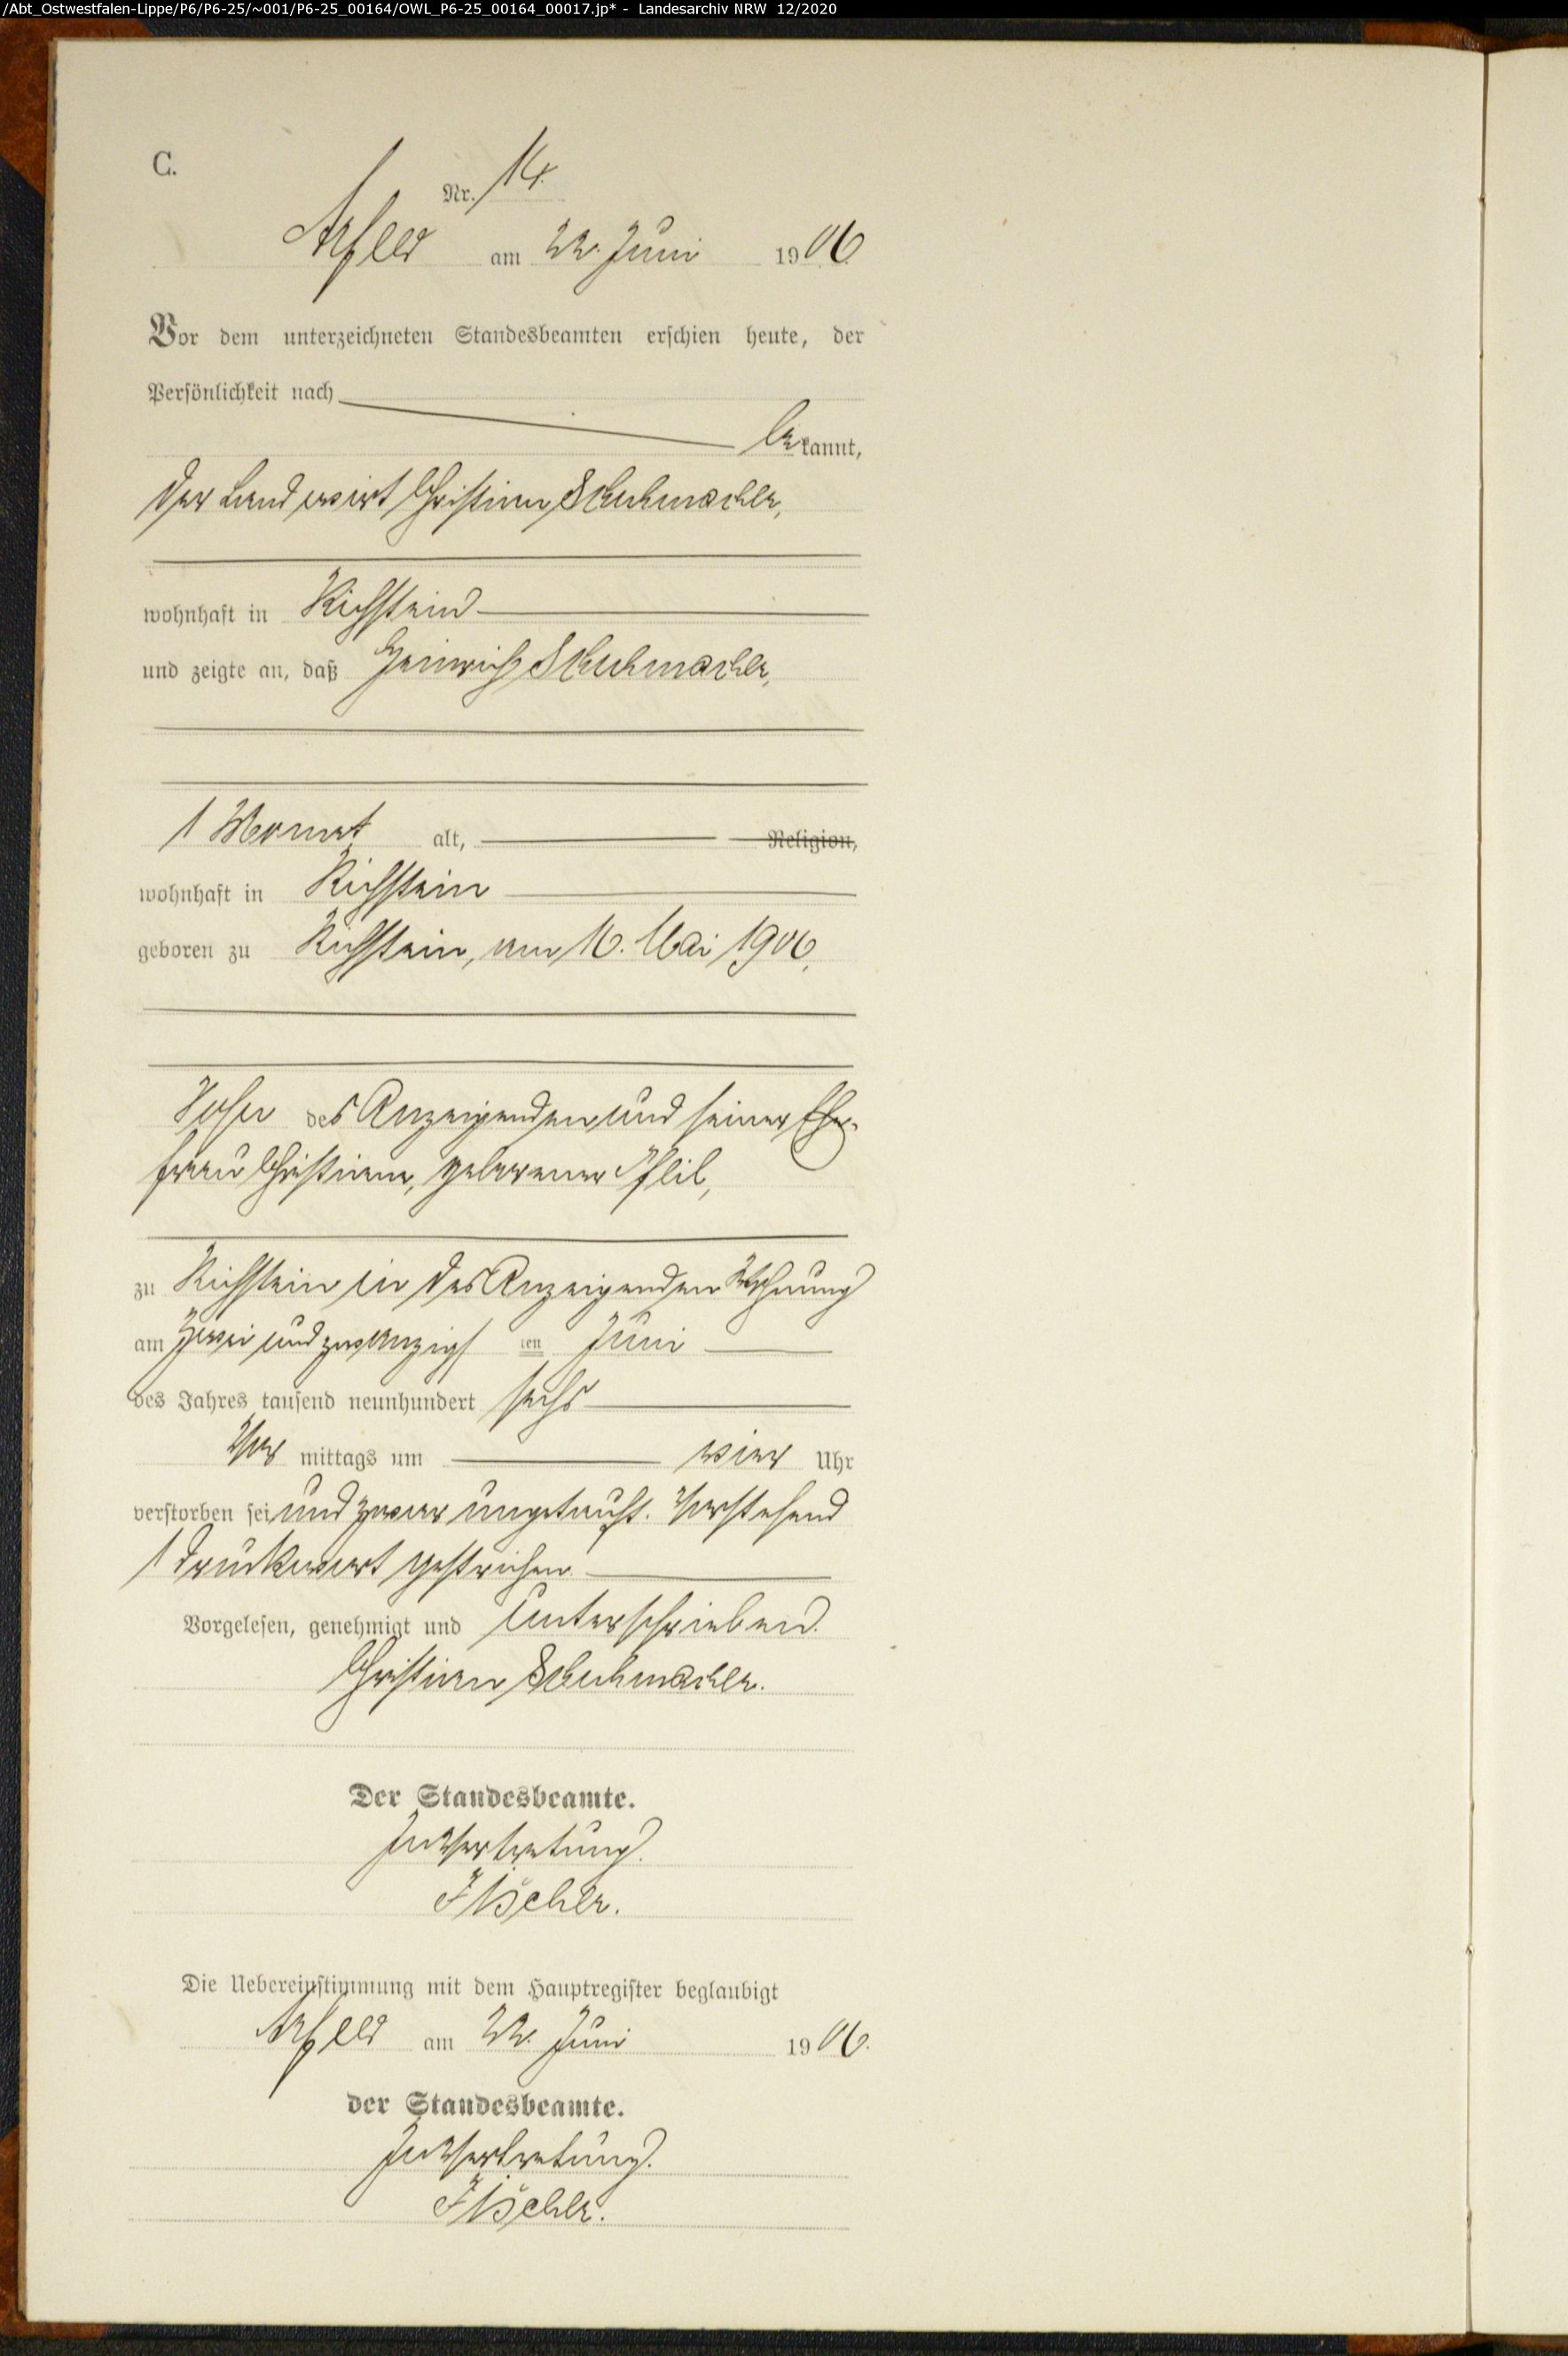 /Abt_Ostwestfalen-Lippe/P6/P6-25/~001/P6-25_00164/OWL_P6-25_00164_00017.jp* - Landesarchiv NRW 12/2020
C.
Nr. 14.
Arfeld am 22. Juni 1906
Vor dem unterzeichneten Standesbeamten erschien heute, der
Persönlichkeit nach
bekannt,
der Landwirt Christian Schuhmacher,
wohnhaft in Richstein
und zeigte an, daß Heinrich Schuhmacher,
1 Monat alt, Religion,
wohnhaft in Richstein
geboren zu Richstein, am 16. Mai 1906,
Sohn des Anzeigenden und seiner Ehe-
frau Christiane, geborener
zu Richstein in des Anzeigenden Wohnung
am zwei und zwanzigsten Juni
des Jahres tausend neunhundert sechs
Vormittags um vier Uhr
verstorben sei und zwar ungetauft. Vorstehend
1 Druckwort gestrichen
Vorgelesen, genehmigt und unterschrieben.
Christian Schuhmacher.
Der Standesbeamte.
In Vertretung.
Fischer.
Die Uebereinstimmung mit dem Hauptregister beglaubigt
Arfeld am 22. Juni 1906.
der Standesbeamte.
In Vertretung.
Fischer.